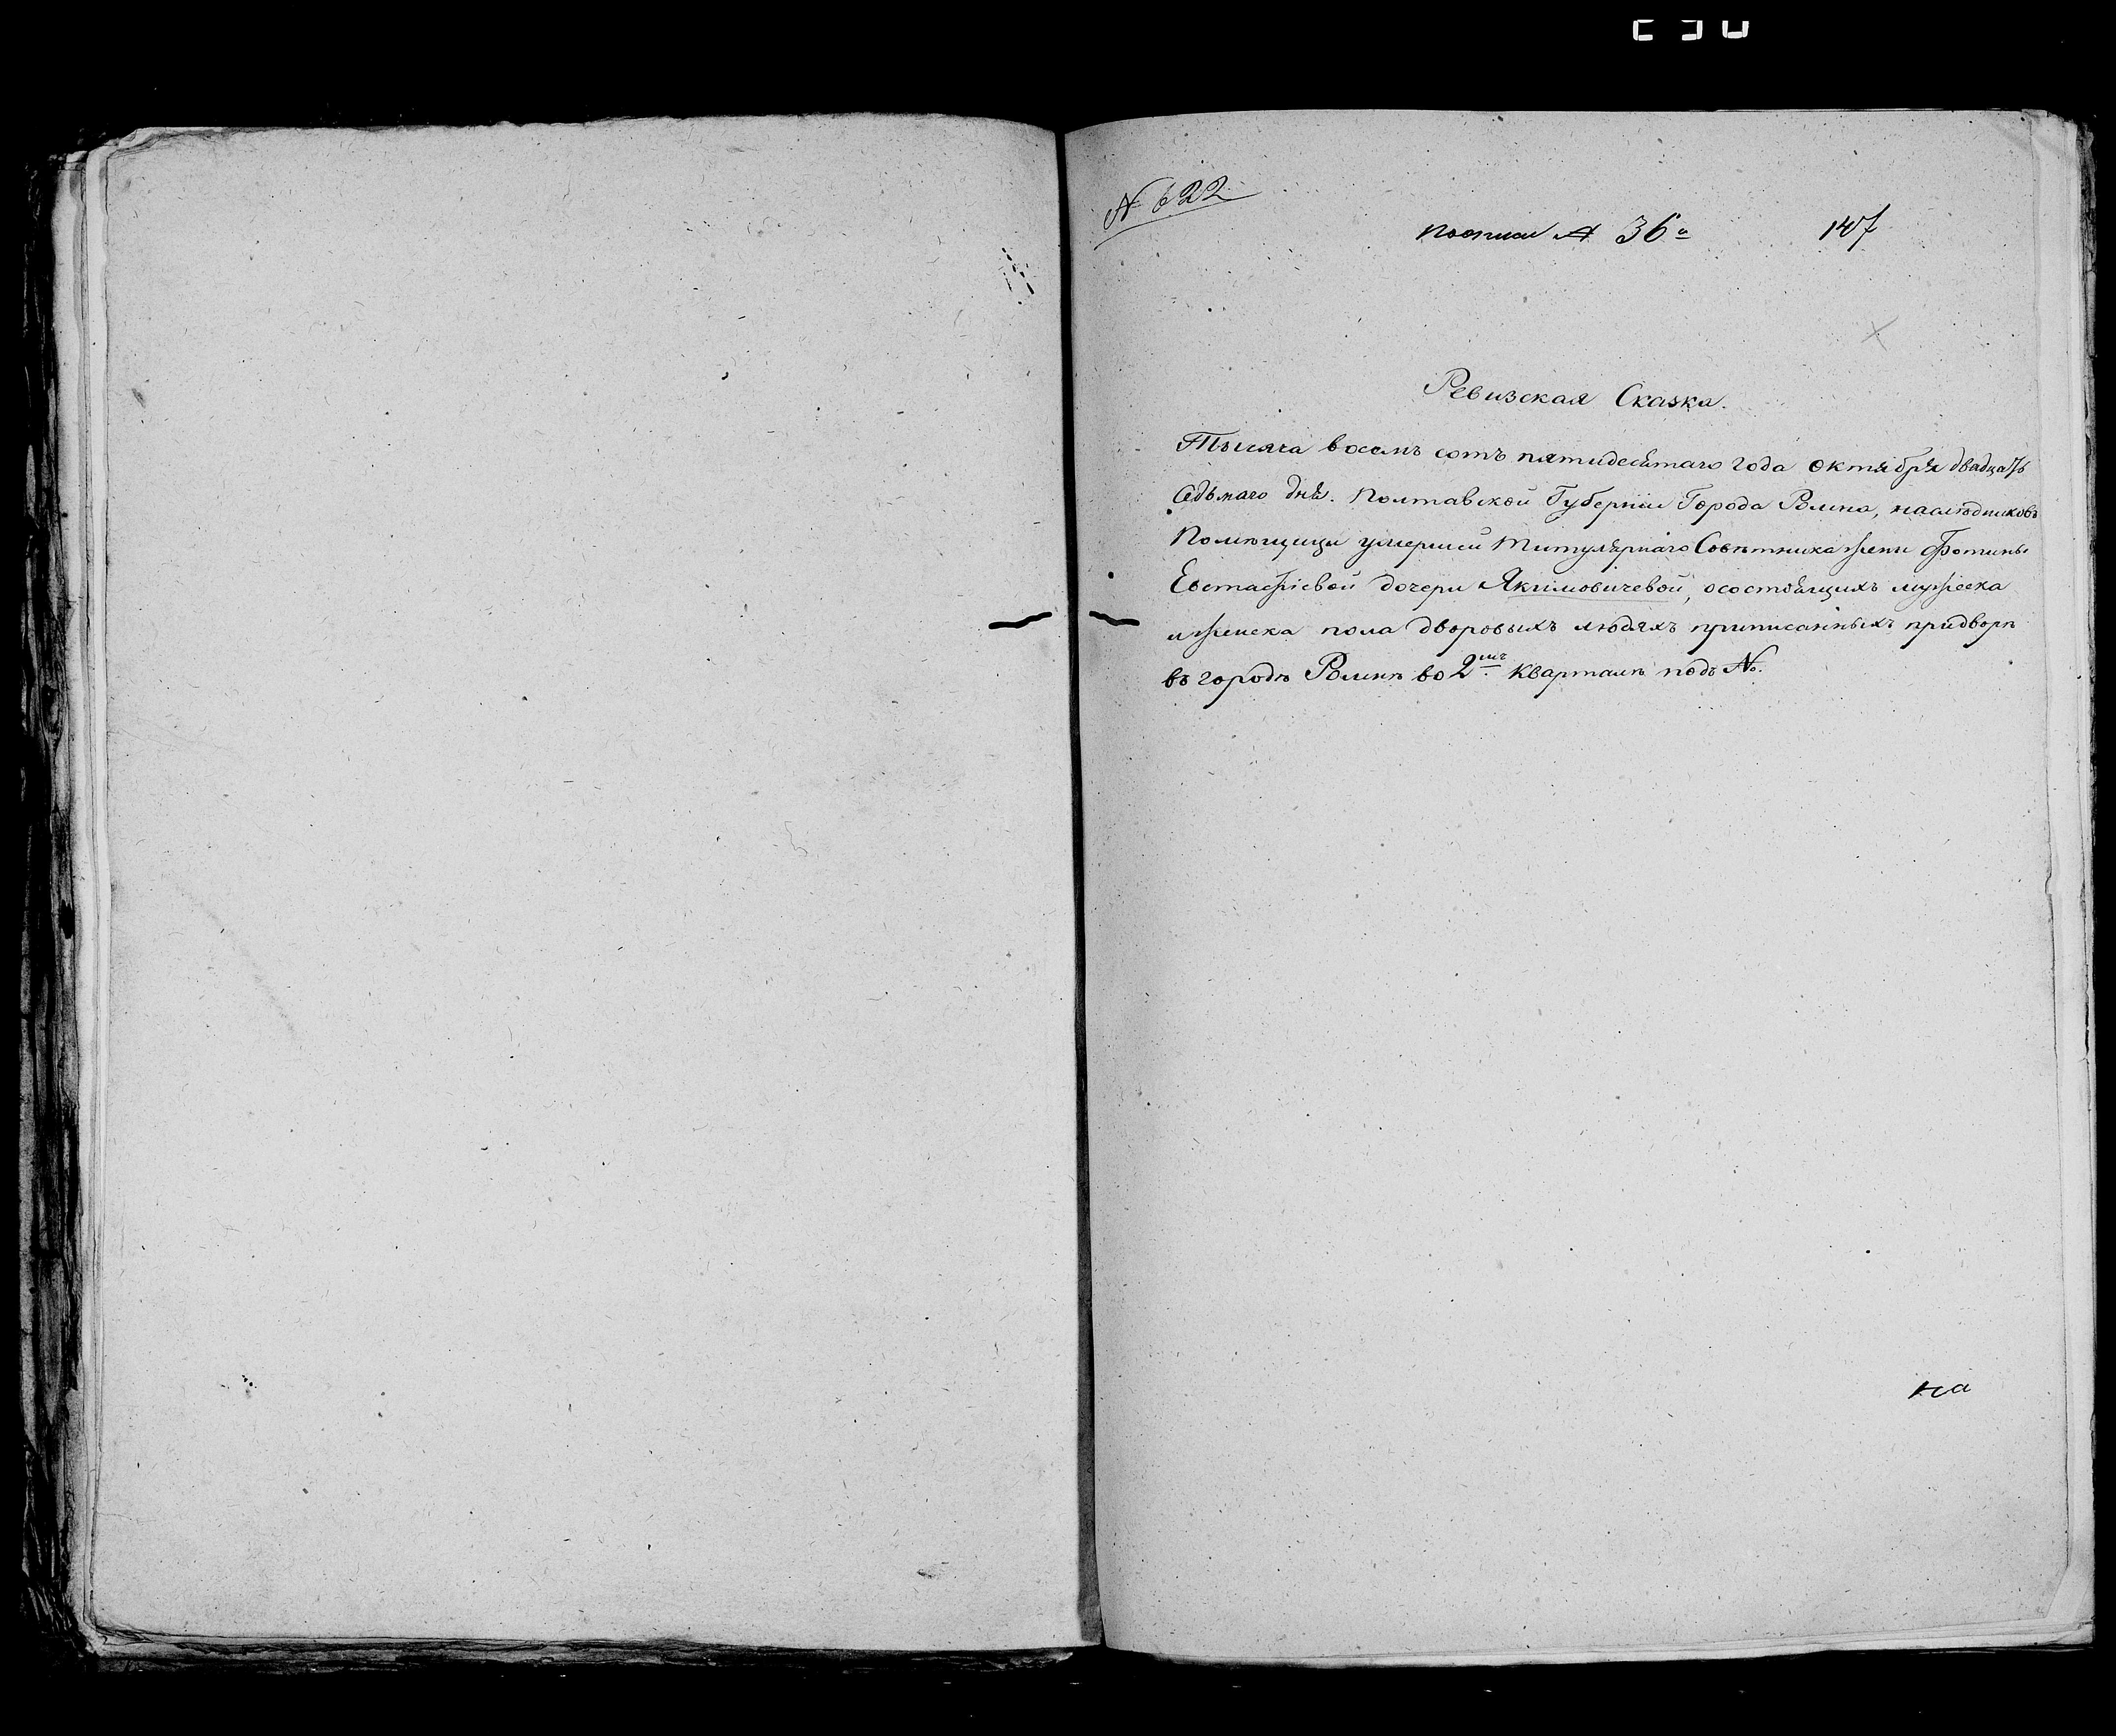 N 622
по описи № 36й 147
Ревизская Сказка.
Тысяча восемъ сотъ пятидесятаго года октября двадцать
седьмаго дня. Полтавской Губерніи Города Ромна, наслѣдниковъ
Помѣщицы умершей Титулярнаго Совѣтника жены Фотины
Евстафіевой дочери Якимовичевой, о состоящихъ мужеска
и женска пола дворовыхъ людяхъ приписанныхъ при дворѣ
въ городѣ Ромнѣ во 2мъ кварталѣ подъ №.
на